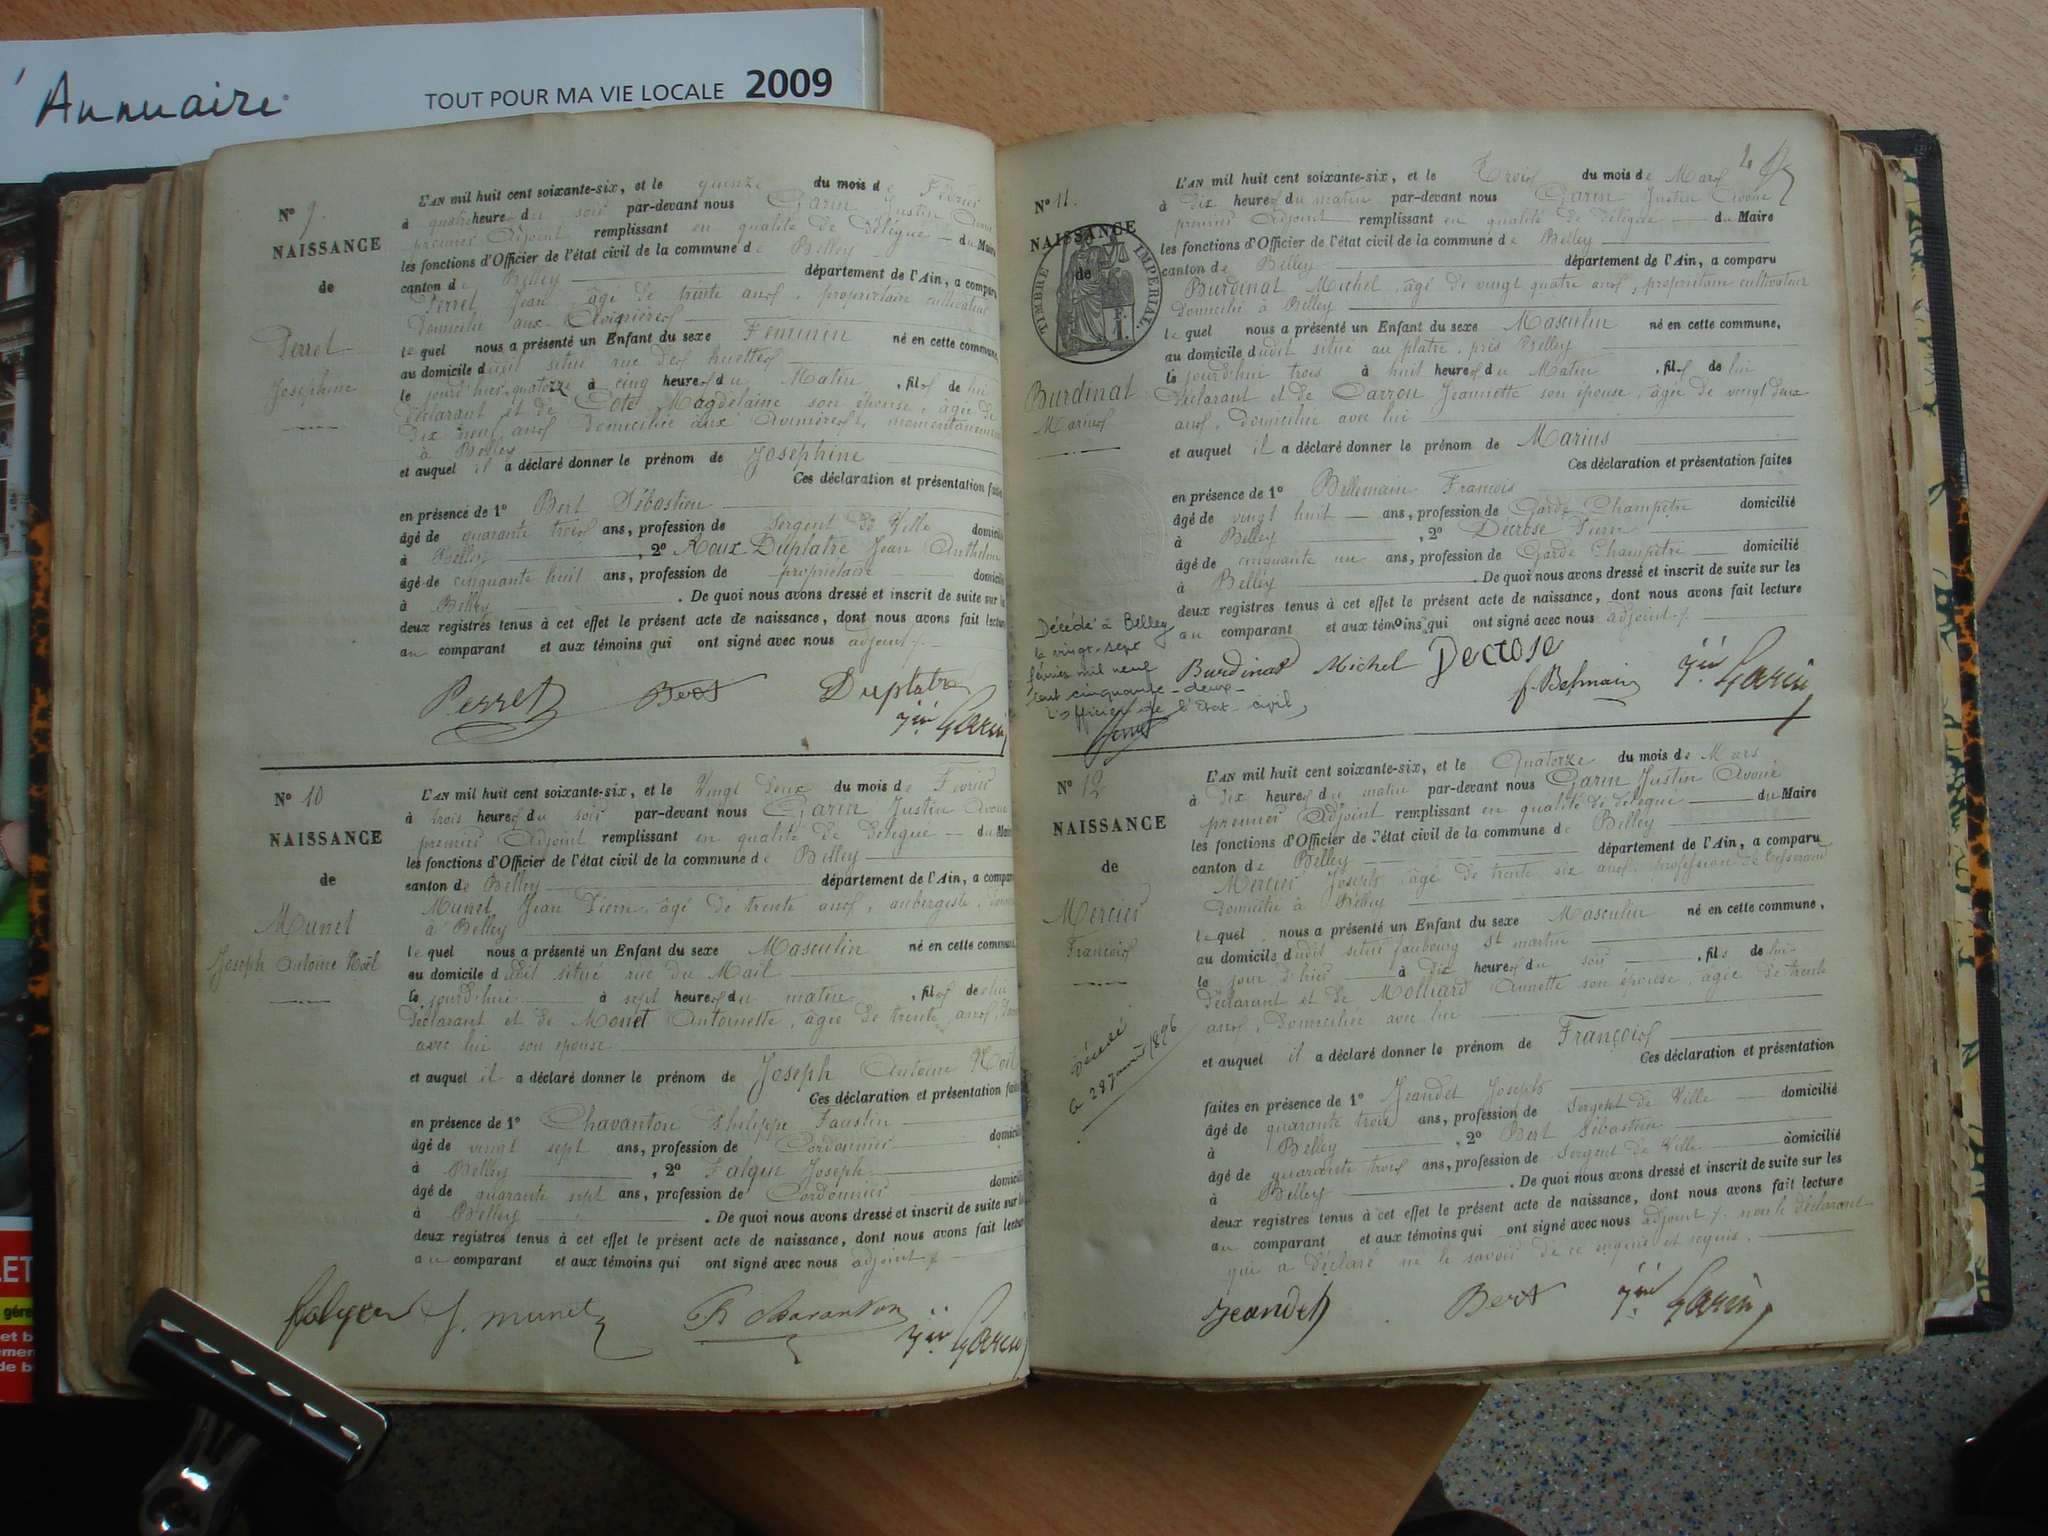 Annuaire
TOUT POUR MA VIE LOCALE 2009
N° 9.
NAISSANCE
de
Perret
Joséphine
L'AN mil huit cent soixante-six, et le quinze du mois de Février
à quatre heures du soir par-devant nous Garin Justin Avoué
premier Adjoint remplissant en qualité de Délégué du Maire
les fonctions d'Officier de l'état civil de la commune de Belley
canton de Belley département de l'Ain, a comparu
Perret Jean, âgé de trente ans, propriétaire cultivateur
domicilié aux
le quel nous a présenté un Enfant du sexe Féminin né en cette commune,
au domicile dudit situé rue des
le jour d'hier quatorze à cinq heures du Matin, fils de lui
déclarant et de Cote Magdelaine son épouse, âgée de
dix neuf ans domiciliée aux momentanément
à Belley
et auquel il a déclaré donner le prénom de Joséphine
Ces déclaration et présentation faites
en présence de 1° Bert Sébastien
âgé de quarante trois ans, profession de Sergent de Ville domicilié
à Belley, 2° Roux Duplatre Jean Anthelme
âgé de cinquante huit ans, profession de propriétaire domicilié
à Belley. De quoi nous avons dressé et inscrit de suite sur les
deux registres tenus à cet effet le présent acte de naissance, dont nous avons fait lecture
au comparant et aux témoins qui ont signé avec nous adjoint.
Perret Bert Duplatre
Jin Garin
N° 10
NAISSANCE
de
Munet
Joseph Antoine Noël
L'AN mil huit cent soixante-six, et le Vingt deux du mois de Février
à trois heures du soir par-devant nous Garin Justin Avoué
premier Adjoint remplissant en qualité de Délégué du Maire
les fonctions d'Officier de l'état civil de la commune de Belley
canton de Belley département de l'Ain, a comparu
Munet Jean Pierre, âgé de trente ans, aubergiste,
à Belley
le quel nous a présenté un Enfant du sexe Masculin né en cette commune,
au domicile dudit situé rue du Mail
le jourd'hui à sept heures du matin, fils de lui
déclarant et de Monet Antoinette, âgée de trente ans,
avec lui, son épouse
et auquel il a déclaré donner le prénom de Joseph Antoine Noël
Ces déclaration et présentation faites
en présence de 1° Chavanton Philippe Faustin
âgé de vingt sept ans, profession de Cordonnier domicilié
à Belley, 2° Falque Joseph
âgé de quarante sept ans, profession de Cordonnier domicilié
à Belley. De quoi nous avons dressé et inscrit de suite sur les
deux registres tenus à cet effet le présent acte de naissance, dont nous avons fait lecture
au comparant et aux témoins qui ont signé avec nous adjoint
J. munet Ph Chavanton Jin Garin
N° 11.
NAISSANCE
de
TIMBRE IMPERIAL.
Burdinat
Marius
L'AN mil huit cent soixante-six, et le Trois du mois de Mars
à dix heures du matin par-devant nous Garin Justin Avoué
premier Adjoint remplissant en qualité de délégué du Maire
les fonctions d'Officier de l'état civil de la commune de Belley
canton de Belley département de l'Ain, a comparu
Burdinat Michel, âgé de vingt quatre ans, propriétaire cultivateur
domicilié à Belley
le quel nous a présenté un Enfant du sexe Masculin né en cette commune,
au domicile dudit situé au platre, près Belley
le jourd'hui trois à huit heures du Matin, fils de lui
déclarant et de Carron Jeannette son épouse, âgée de vingt deux
ans, domiciliée avec lui
et auquel il a déclaré donner le prénom de Marius
Ces déclaration et présentation faites
en présence de 1° Bellemain François
âgé de vingt huit ans, profession de Garde Champêtre domicilié
à Belley, 2° Decrose Pierre
âgé de cinquante un ans, profession de Garde Champêtre domicilié
à Belley. De quoi nous avons dressé et inscrit de suite sur les
deux registres tenus à cet effet le présent acte de naissance, dont nous avons fait lecture
au comparant et aux témoins qui ont signé avec nous adjoint.
Décédé à Belley
le vingt-sept
février mil neuf
cent cinquante-deux-
L'officier de l'Etat-civil,
Burdinat Michel Decrose
f. Belmain Jin Garin
N° 12
NAISSANCE
de
Mercier
François
Décédé
le 28 janvier 1896
L'AN mil huit cent soixante-six, et le Quatorze du mois de Mars
à dix heures du matin par-devant nous Garin Justin Avoué
premier Adjoint remplissant en qualité de délégué du Maire
les fonctions d'Officier de l'état civil de la commune de Belley
canton de Belley département de l'Ain, a comparu
Mercier Joseph, âgé de trente six ans, profession de tisserand
domicilié à Belley
le quel nous a présenté un Enfant du sexe Masculin né en cette commune,
au domicile dudit situé faubourg St martin
le jour d'hier à dix heures du soir, fils de lui
déclarant et de Molliard Annette son épouse, âgée de trente
ans, domiciliée avec lui
et auquel il a déclaré donner le prénom de François
Ces déclaration et présentation
faites en présence de 1° Jeandet Joseph
âgé de quarante trois ans, profession de Sergent de Ville domicilié
à Belley, 2° Bert Sébastien
âgé de quarante trois ans, profession de Sergent de Ville domicilié
à Belley. De quoi nous avons dressé et inscrit de suite sur les
deux registres tenus à cet effet le présent acte de naissance, dont nous avons fait lecture
au comparant et aux témoins qui ont signé avec nous adjoint, non le déclarant
qui a déclaré ne le savoir de ce enquis et requis.
Jeandet Bert Jin Garin